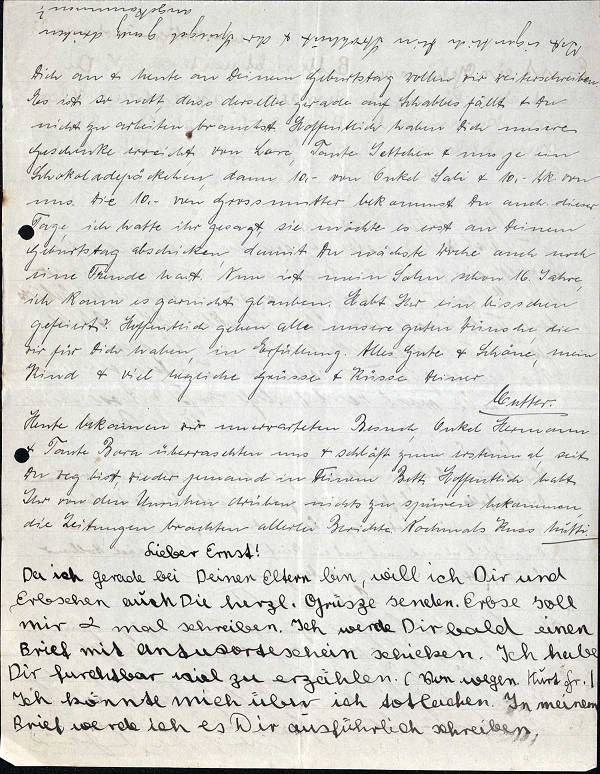 Ist eigentlich Dein Strohhut & der Spiegel ganz drüben
angekommen?
Dich an & heute an Deinem Geburtstag wollen wir weiterschreiben.
Es ist so nett, dass derselbe gerade auf Schabbes fällt & Du
nicht zu arbeiten brauchst. Hoffentlich haben Dich unsere
Geschenke erreicht, von Lore, Tante Settchen & uns je ein
Schokoladepäckchen, dann 10.- von Onkel Sali & 10.- Mk von
uns. Die 10.- von Grossmutter bekommst Du auch dieser
Tage, ich hatte ihr gesagt, sie möchte es erst an Deinem
Geburtstag abschicken, damit Du nächste Woche auch noch
eine Freude hast. Nun ist mein Sohn schon 16 Jahre,
ich kann es garnicht glauben. Habt Ihr ein bisschen
gefeiert? Hoffentlich gehen alle unsere guten Wünsche, die
wir für Dich haben, in Erfüllung. Alles Gute & Schöne, mein
Kind & viel herzliche Grüsse & Küsse Deiner
Mutter.
Heute bekamen wir unerwarteten Besuch, Onkel Hermann
& Tante Dora überraschten uns & schläft zum erstenmal, seit
Du weg bist, wieder jemand in Deinem Bett. Hoffentlich habt
Ihr von den Unruhen drüben nichts zu spüren bekommen,
die Zeitungen brachten allerlei Berichte. Nochmals Kuss Mutti.
Lieber Ernst!
Da ich gerade bei Deinen Eltern bin, will ich Dir und
Erbschen auch Die herzl. Grüsze senden. Erbse soll
mir 2 mal schreiben. Ich werde Dir bald einen
Brief mit Antwortschein schicken. Ich habe
Dir furchtbar viel zu erzählen. (Von wegen Kurt Gr.!
Ich könnte mich über ich totlachen. In meinem
Brief werde ich es Dir ausführlich schreiben,